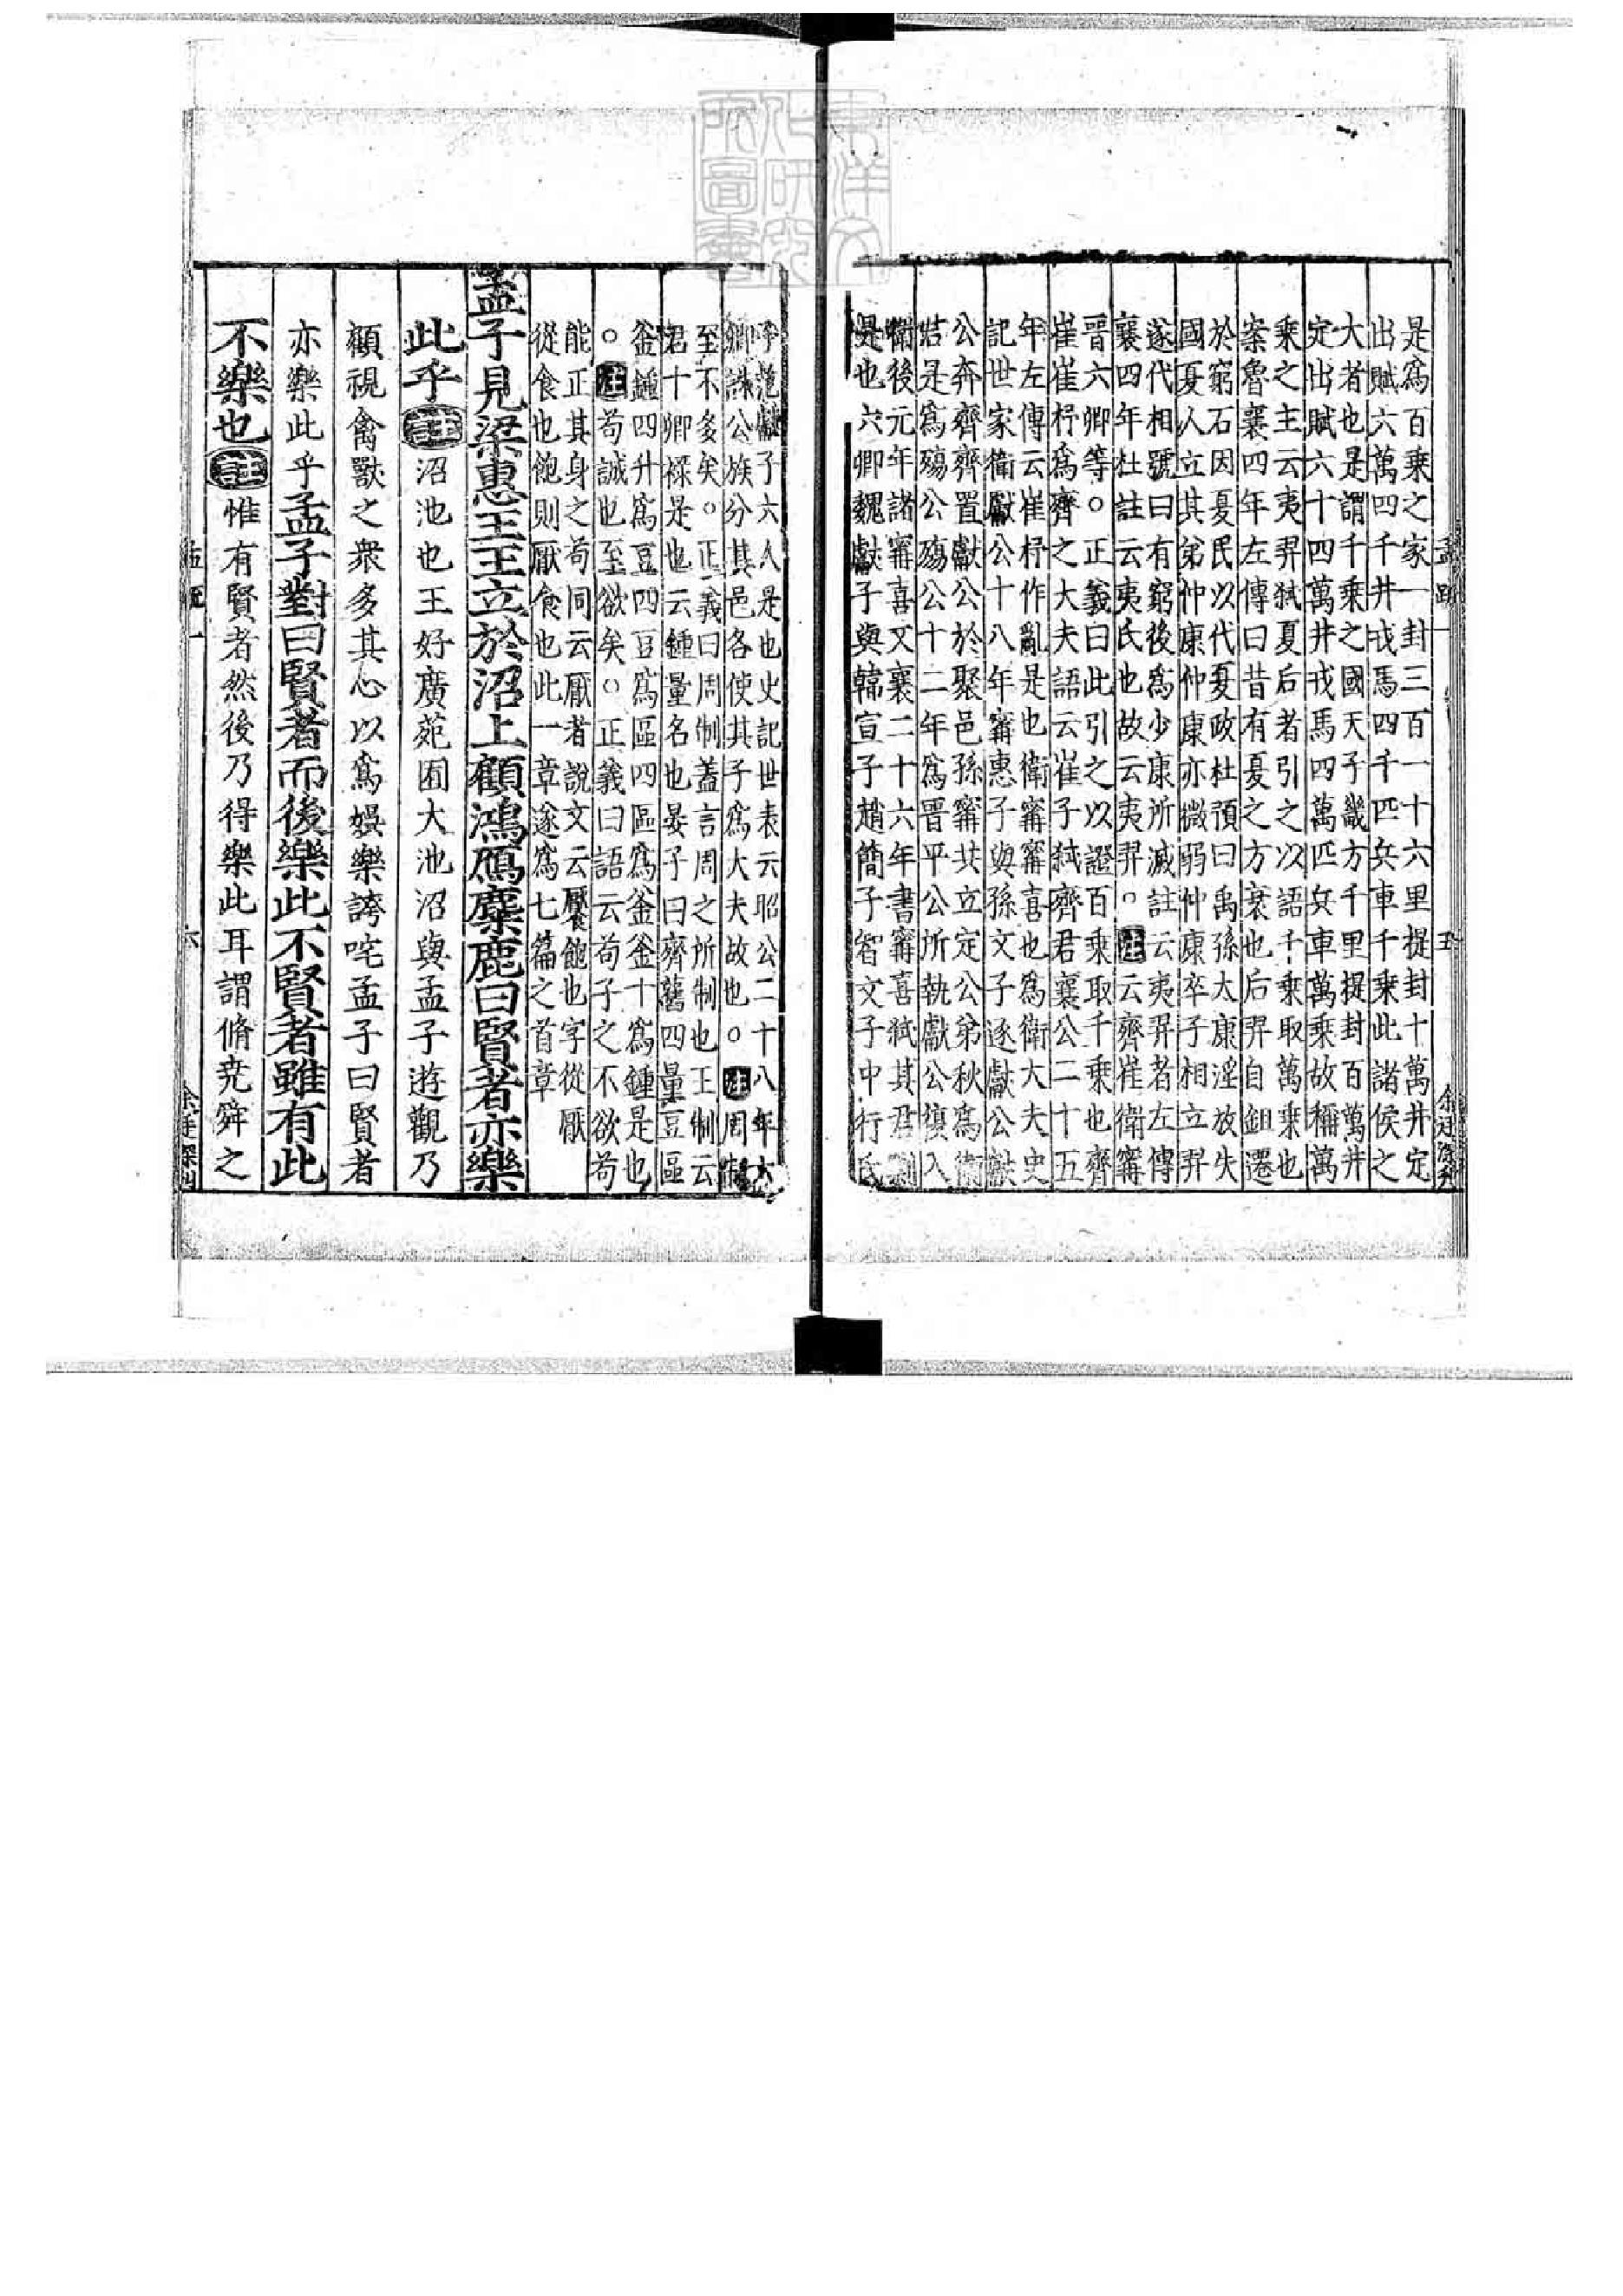 孟疏一 五 余廷深刊
是爲百乘之家一封三百一十六里提封十萬井定
出賦六萬四千井戎馬四千匹兵車千乘此諸侯之
大者也是謂千乘之國天子畿方千里提封百萬井
定出賦六十四萬井戎馬四萬匹兵車萬乘故稱萬
乘之主云夷羿弒夏后者引之以語千乘取萬乘也
案魯襄四年左傳曰昔有夏之方衰也后羿自鉏遷
於窮石因夏民以代夏政杜預曰禹孫太康淫放失
國夏人立其弟仲康仲康亦微弱仲康卒子相立羿
遂代相號曰有窮後爲少康所滅註云夷羿者左傳
襄四年杜註云夷氏也故云夷羿。注云齊崔衛甯
晉六卿等。正義曰此引之以證百乘取千乘也齊
崔崔杼爲齊之大夫語云崔子弒齊君襄公二十五
年左傳云崔杼作亂是也衛甯甯喜也爲衛大夫史
記世家衛獻公十八年甯惠子與孫文子逐獻公獻
公奔齊齊置獻公於聚邑孫甯共立定公弟秋爲衛
君是爲殤公殤公十二年爲晉平公所執獻公復入
衛後元年諸甯喜又襄二十六年書甯喜弒其君
是也六卿魏獻子與韓宣子趙簡子智文子中行氏
子范獻子六人是也史記世表云昭公二十八年六
卿誅公族分其邑各使其子爲大夫故也。注周制
至不多矣。正義曰周制蓋言周之所制也王制云
君十卿祿是也云鍾量名也晏子曰齊舊四量豆區
釜鍾四升爲豆四豆爲區四區爲釜釜十爲鍾是也
。注苟誠也至欲矣。正義曰語云苟子之不欲苟
能正其身之苟同云厭者說文云饜飽也字從厭
從食也飽則厭食也此一章遂爲七篇之首章
孟子見梁惠王王立於沼上顧鴻鴈麋鹿曰賢者亦樂
此乎註沼池也王好廣苑囿大池沼與孟子遊觀乃
顧視禽獸之衆多其心以爲娛樂誇咤孟子曰賢者
亦樂此乎孟子對曰賢者而後樂此不賢者雖有此
不樂也註惟有賢者然後乃得樂此耳謂脩堯舜之
孟疏一 六 余廷深刊